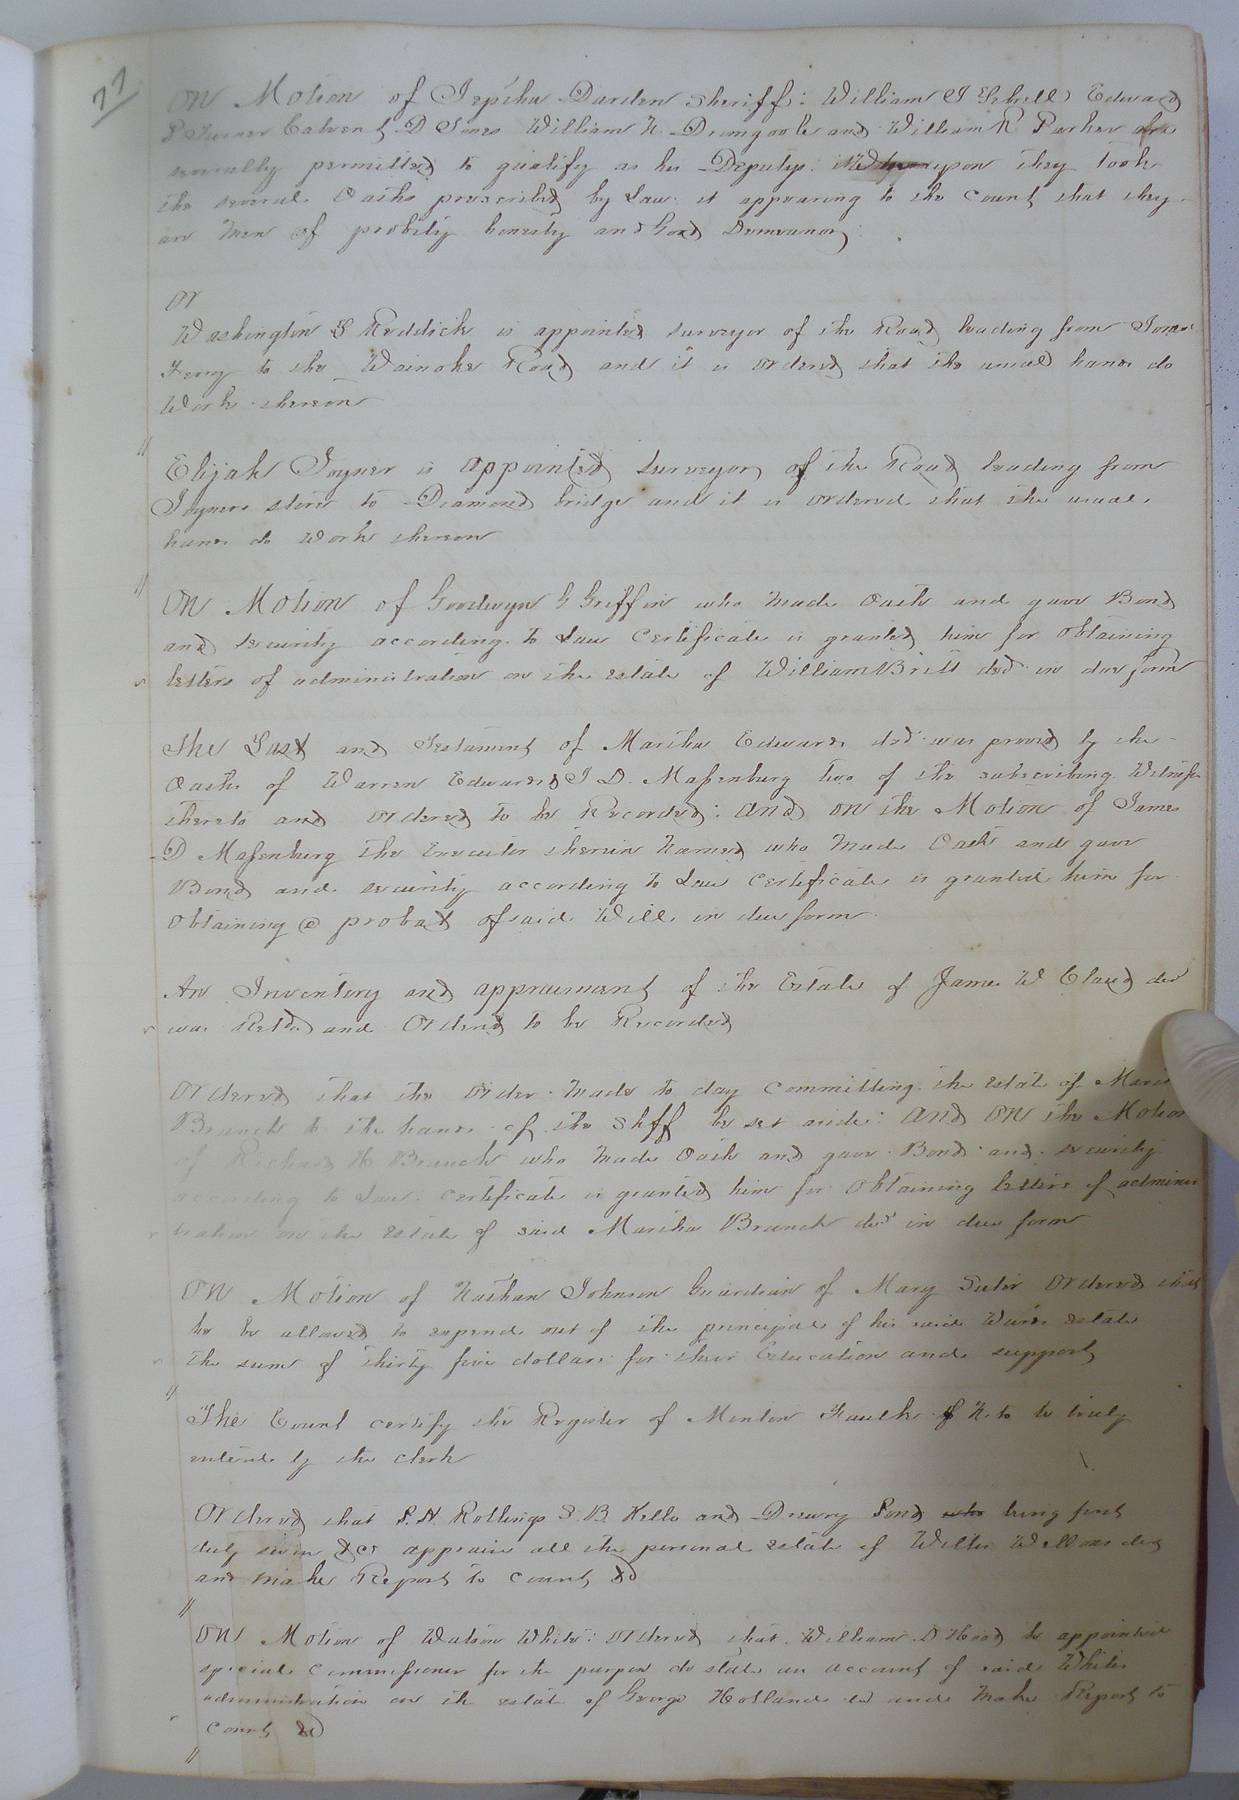 77
On Motion of Jeptha Darden Sheriff: William J Sebrell Edward
P Turner Calvert D Jones William N. Dromgoole and William R Parker are
severally permitted to qualify as his Deputys. upon they took
the several Oaths prescribed by Law: it appearing to the Court that they
are Men of probity honesty and Good Demeanor:
or
Washington S Reddick is appointed surveyor of the Road leading from Jones
Ferry to the Wainoke Road and it is ordered that the usual hands do
Work thereon
"
Elijah Joyner is appointed Surveyor of the Road leading from
Joyners store to Diamond bridge and it is ordered that the usual
hands do Work thereon
"
On Motion of Goodwyn G Griffin who Made Oath and gave Bond
and security according to Law Certificate is granted him for obtaining
letters of administration on the estate of William Britt decd in due form
The Last and Testament of Martha Edwards decd was proved by the
Oaths of Warren Edwards & J D. Massenburg two of the subscribing Witness
thereto and ordered to be Recorded: And on the Motion of James
D Massenburg the Executor therein Named who Made Oath and gave
Bond and security according to Law Certificate is granted him for
obtaining a probat of said Will in due form.
An Inventory and appraisment of the Estate of James W Claud decd
was Retd. and Ordered to be Recorded
Ordered that the order Made to day Committing the estate of
Branch to the hands of the Shff be set aside: And on the Motion
of Richard H Branch who Made Oath and gave Bond and security
according to Law. Certificate is granted him for Obtaining letters of adminis
tration on the estate of said Martha Branch decd in due form
On Motion of Nathan Johnson Guardian of Mary Suter Ordered that
he be allowed to expend out of the principal of his said Wards estate
the sum of thirty five dollars for their Education and support
"
The Court certify the Register of Menton Faulk of N. to be truly
entered by the Clerk
Ordered that S. H. Rollings S. B. Kello and Drewry Pond who being first
duly sworn &c appraise all the personal estate of Willis Wellons decd
and Make Report to Court &c
"
On Motion of Watson White: Ordered that William D Hood be appointed
special Commissioner for the purpose to state an account of said Whites
administration on the estate of George Holland decd and Make Report to
Court &c
"